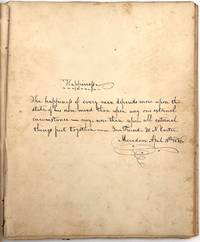 Happiness
The happiness of every man depends more upon the
state of his own mind than upon any one external
circumstance — nay, more than upon all external
things put together — Your Friend H. N. Carter
Meriden April